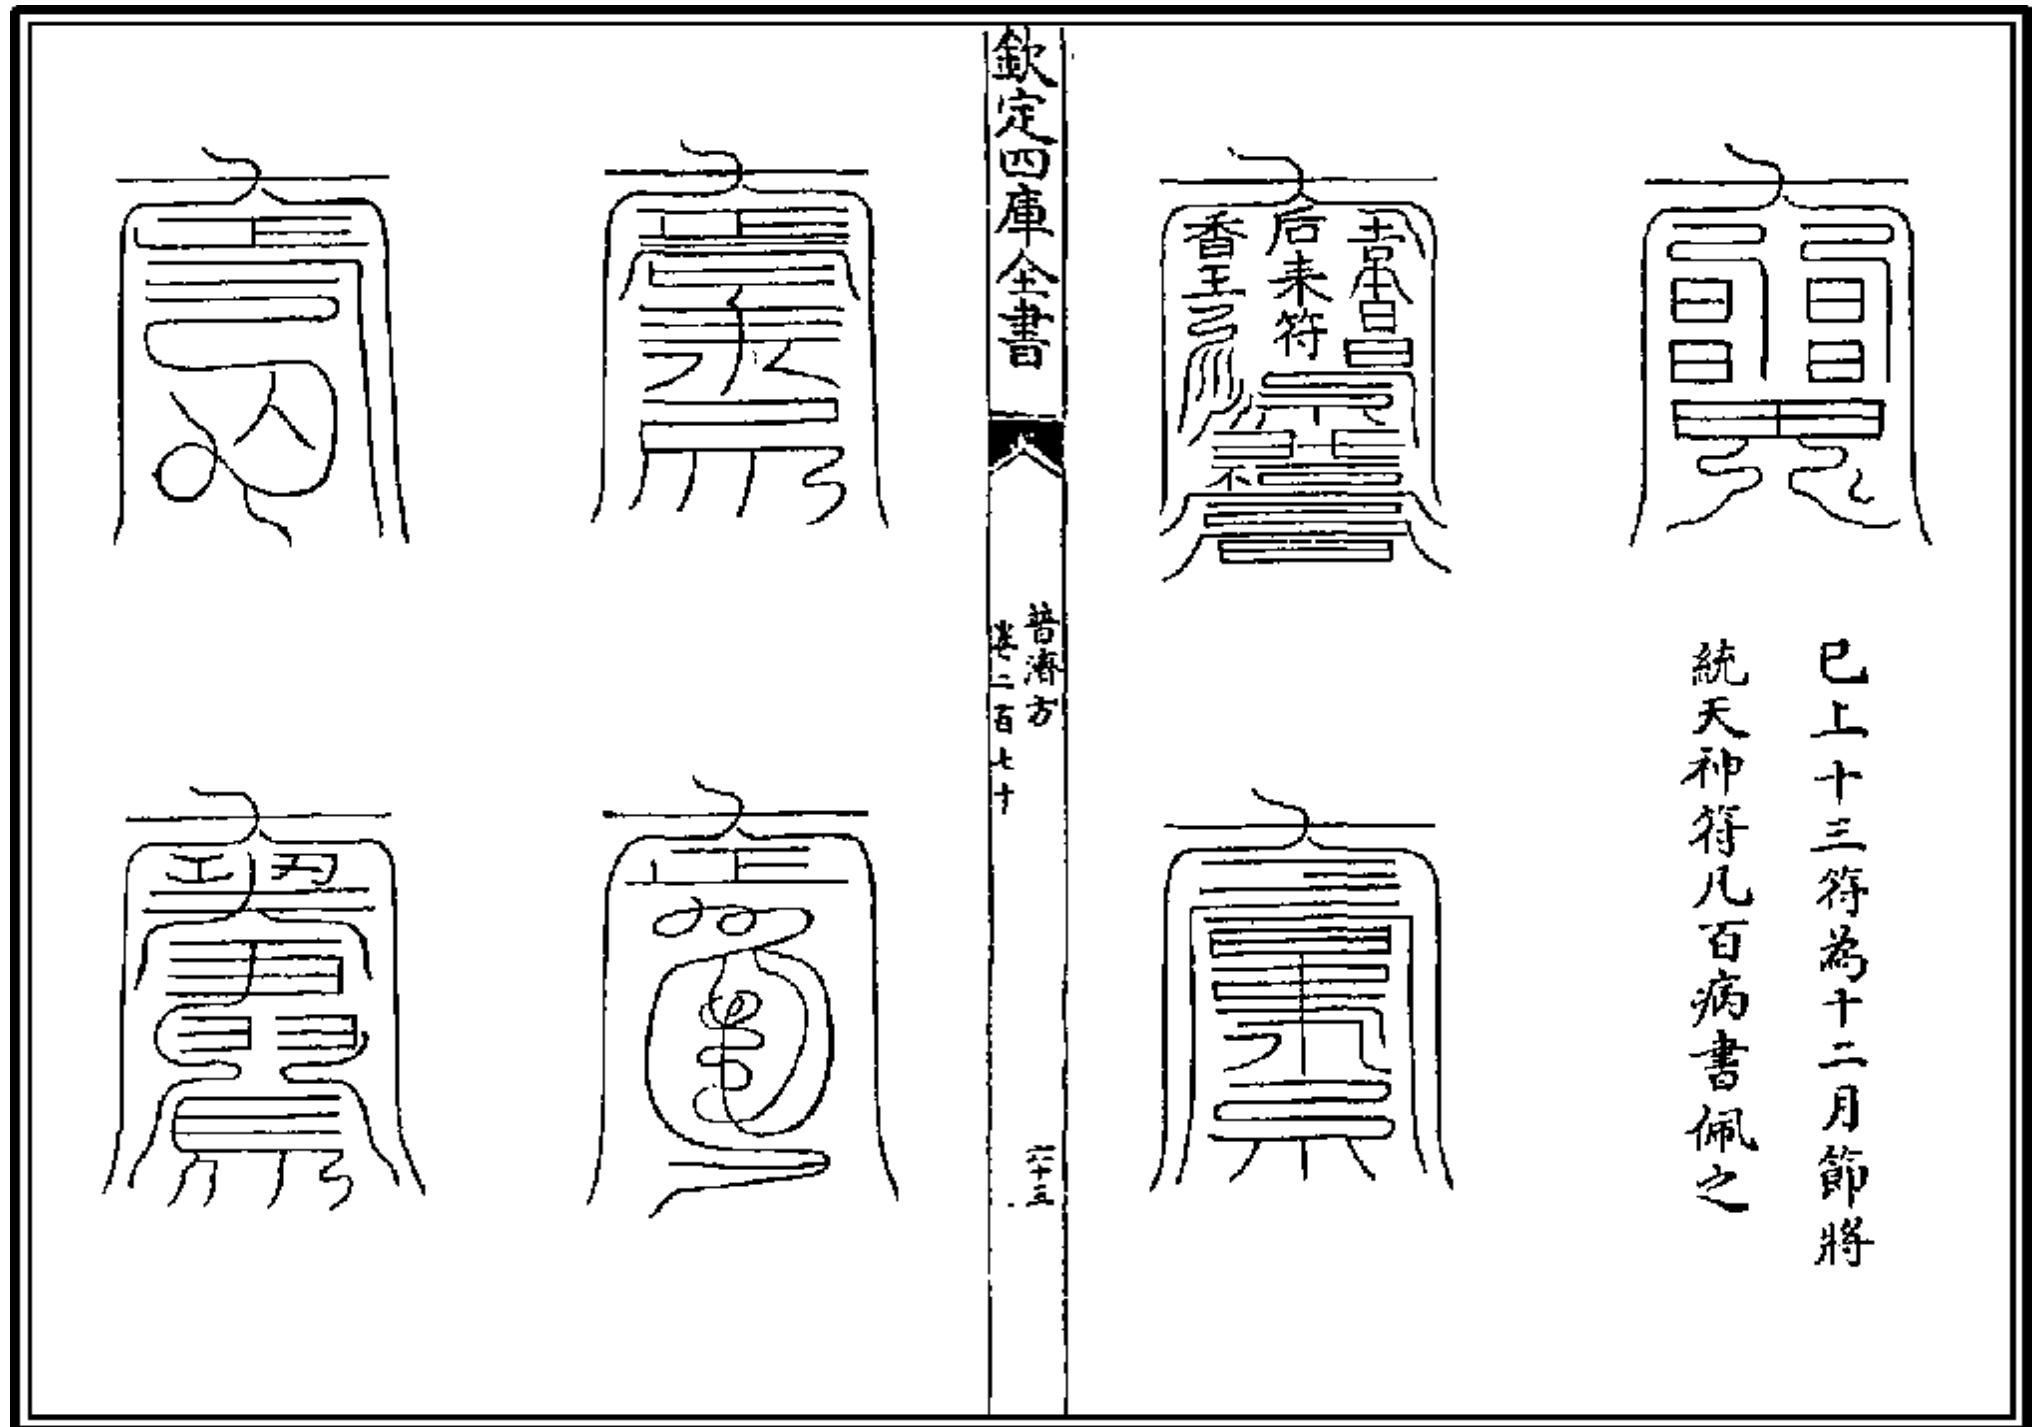 已上十三符為十二月節將
統天神符凡百病書佩之
后来符
香王
欽定四庫全書
普濟方
卷二百七十
六十五